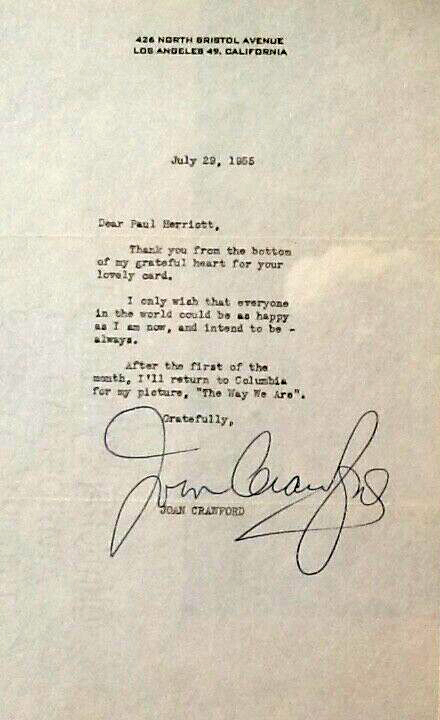 426 NORTH BRISTOL AVENUE
LOS ANGELES 49, CALIFORNIA
July 29, 1955
Dear Paul Herriott,
Thank you from the bottom
of my grateful heart for your
lovely card.
I only wish that everyone
in the world could be as happy
as I am now, and intend to be -
always.
After the first of the
month, I'll return to Columbia
for my picture, "The Way We Are".
Gratefully,
Joan Crawford
JOAN CRAWFORD